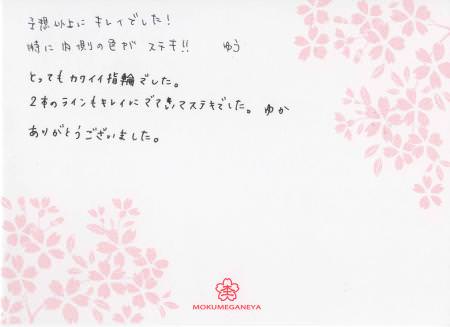 予想以上に キレイでした!
特に内側の色が ステキ!! ゆう
とってもカワイイ指輪でした。
2本のラインもキレイにでてきてステキでした。 ゆか
ありがとうございました。
MOKUMEGANEYA